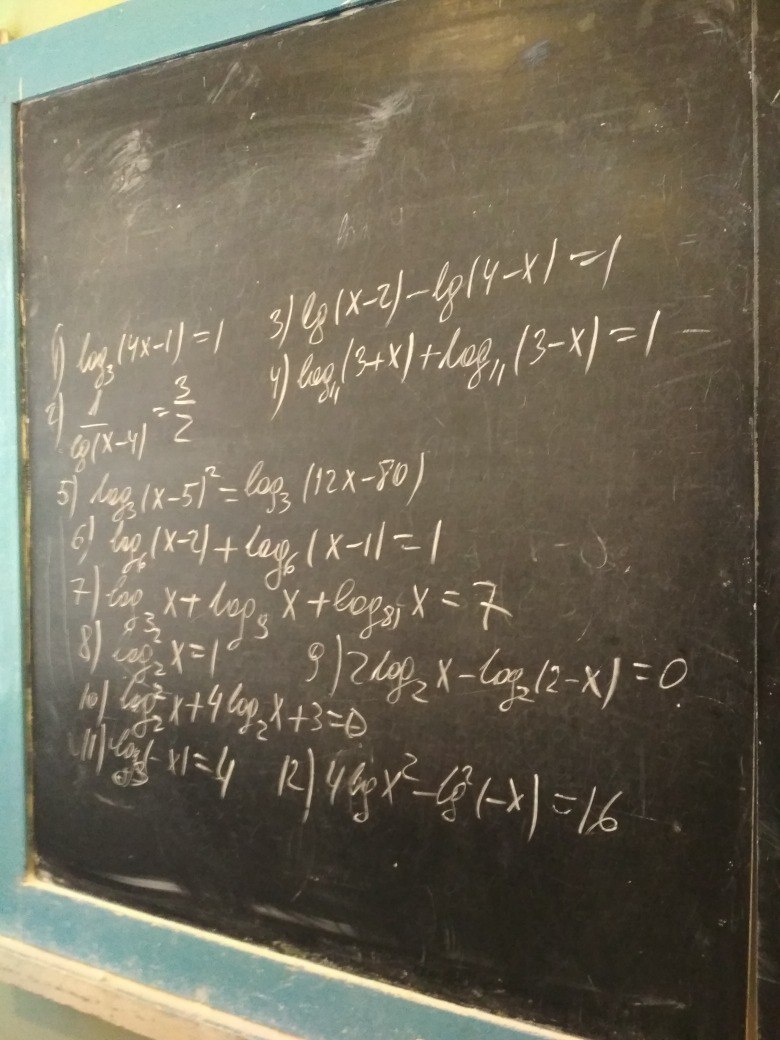 1) log₃(4x-1)=1
2) 1/lg(x-4) = 3/2
3) lg(x-2)-lg(4-x)=1
4) log₁₁(3+x)+log₁₁(3-x)=1
5) log₃(x-5)²=log₃(12x-80)
6) log₆(x-2)+log₆(x-1)=1
7) log₃x+log₉x+log₈₁x=7
8) log₂²x=1
9) 2log₂x-log₂(2-x)=0
10) log₂²x+4log₂x+3=0
11) (-x)=4
12) 4lgx²-lg²(-x)=16